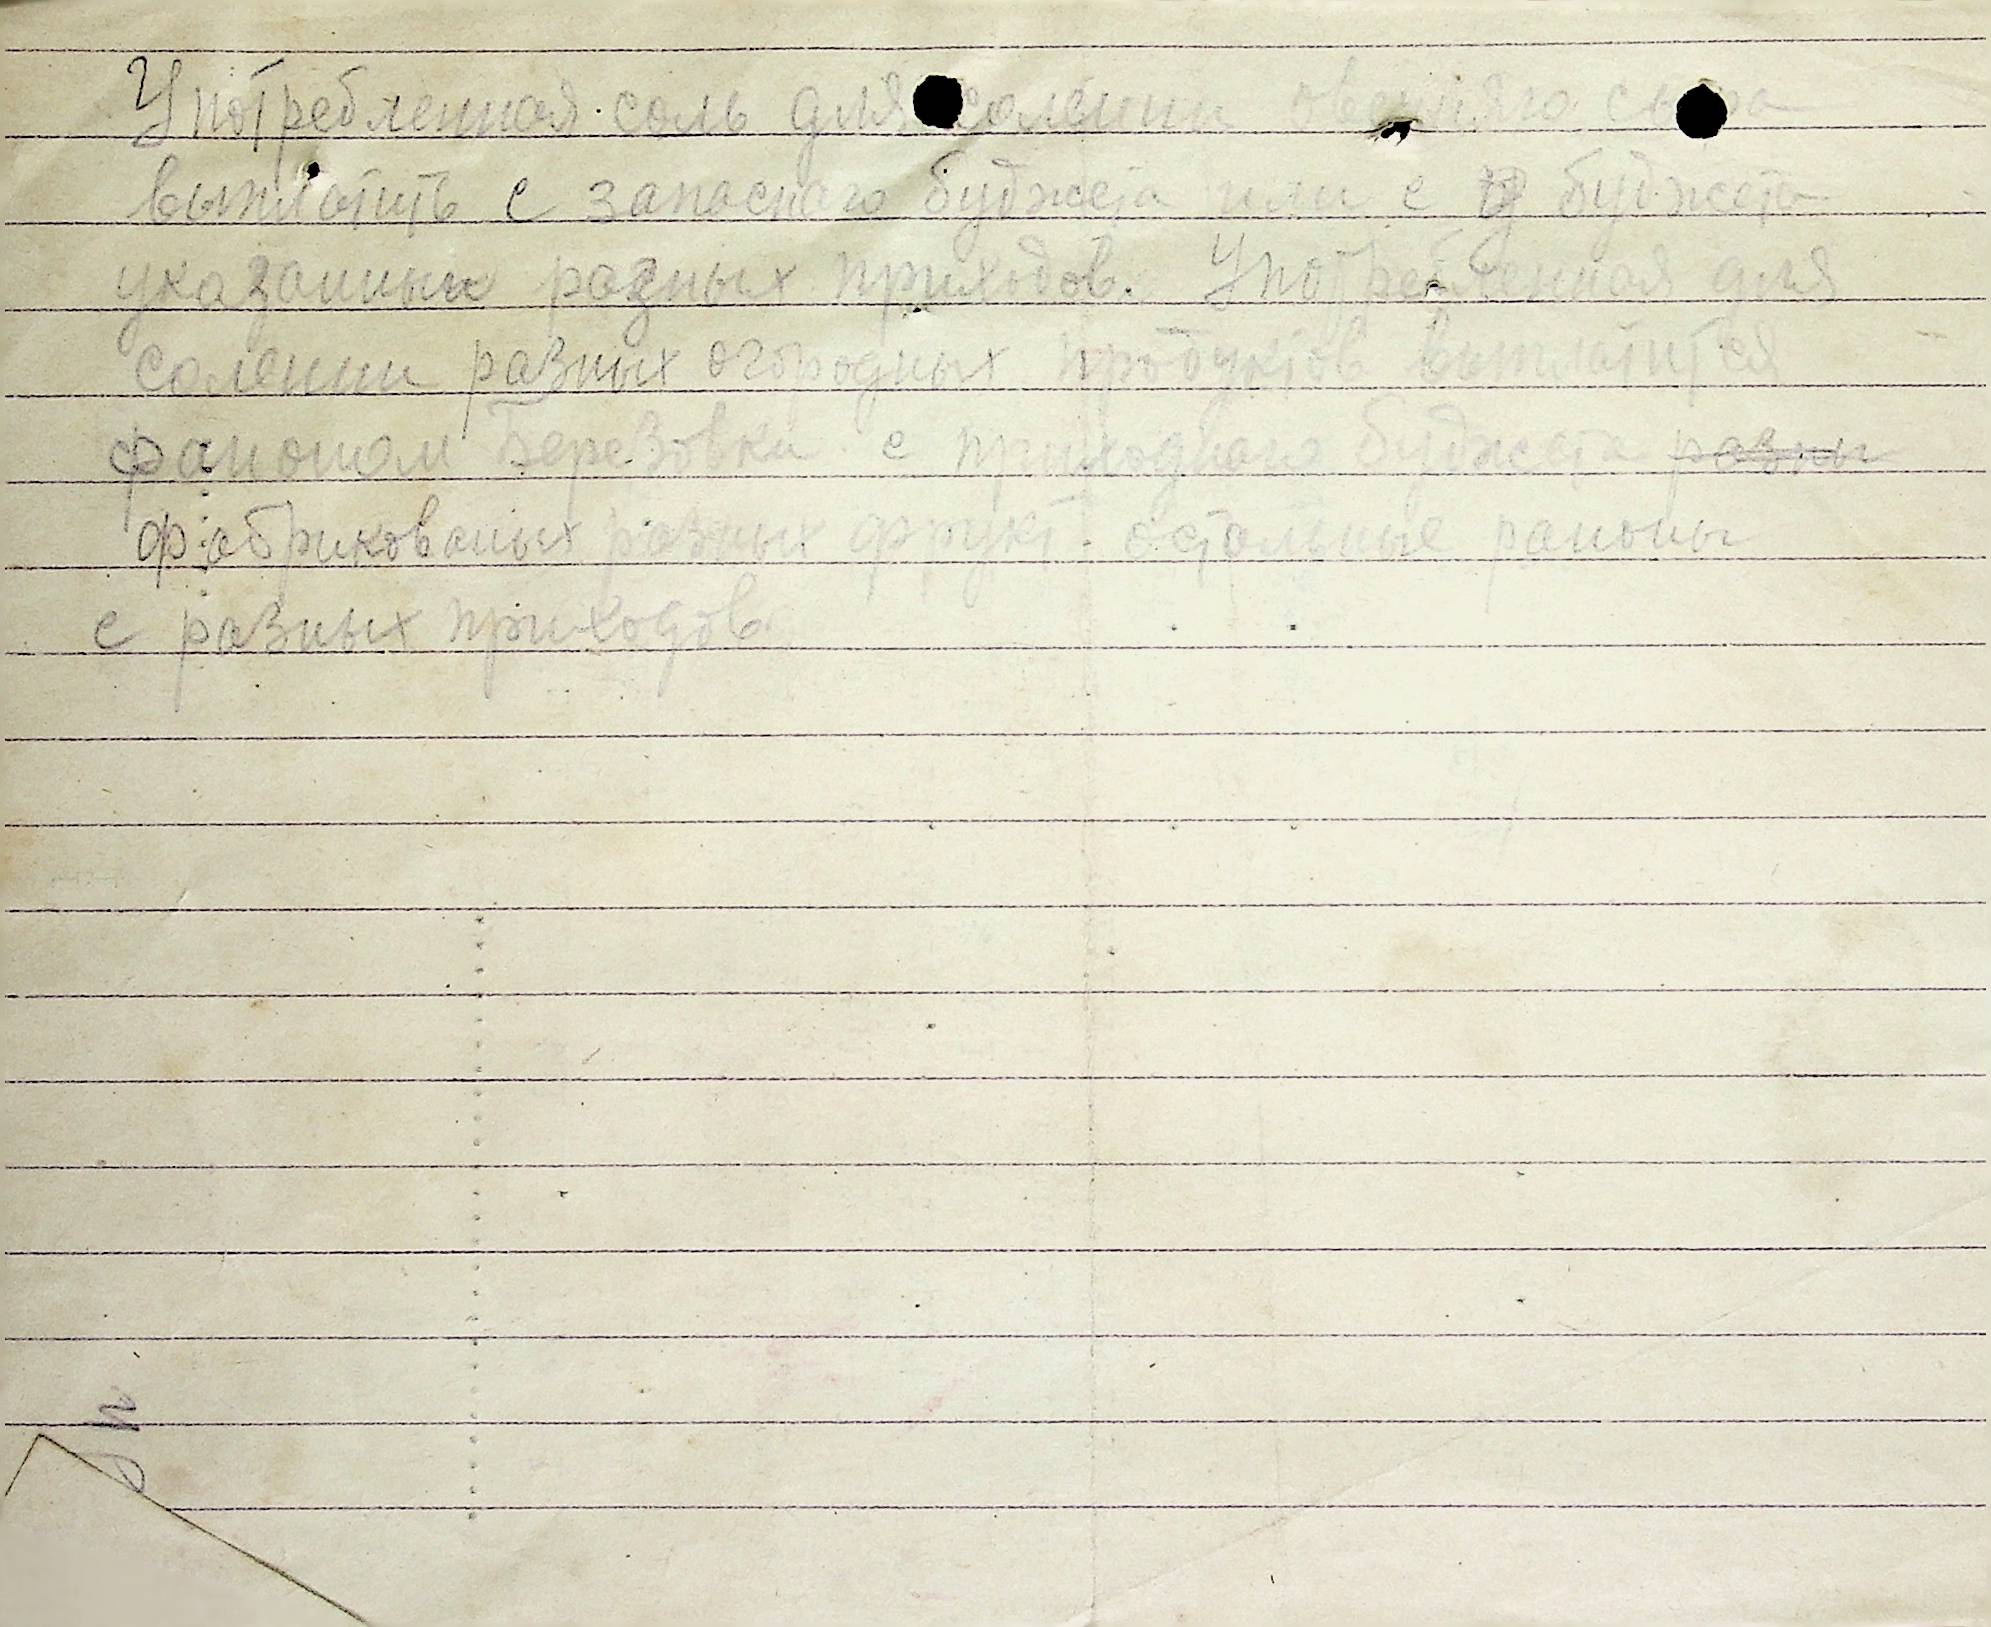 Употребленная соль для солении овечияго сыра
выплотить с запаснаго буджета или с буджета
указанных разных приходов. Употребленная для
солении разных огородных продуктов выплотится
раионом Березовки с приходнаго буджета разны
фабрикованых разных фрукт. остальные раионы
с разных приходов